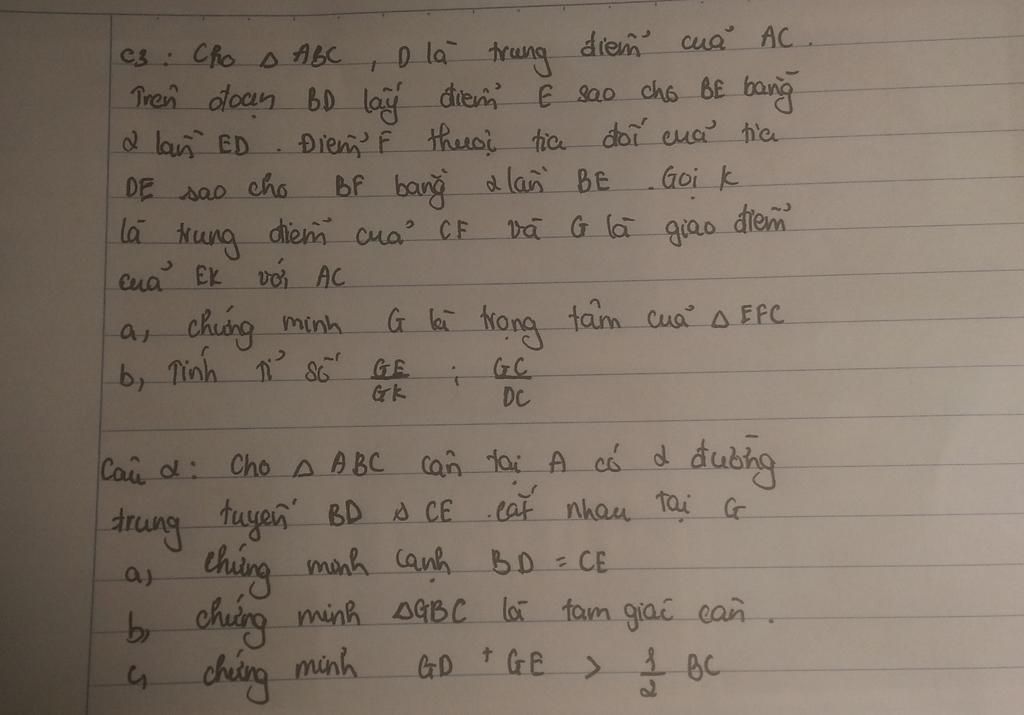 C3: Cho Δ ABC, D là trung điểm của AC.
Trên đoạn BD lấy điểm E sao cho BE bằng
2 lần ED. Điểm F thuộc tia đối của tia
DE sao cho BF bằng 2 lần BE. Gọi K
là trung điểm của CF và G là giao điểm
của EK với AC
a, chứng minh G là trọng tâm của Δ EFC
b, Tính tỉ số GE/GK ; GC/DC
Câu 2: Cho Δ ABC cân tại A có 2 đường
trung tuyến BD Δ CE cắt nhau tại G
a, chứng minh cạnh BD = CE
b, chứng minh ΔGBC là tam giác cân.
c, chứng minh GD + GE > 1/2 BC